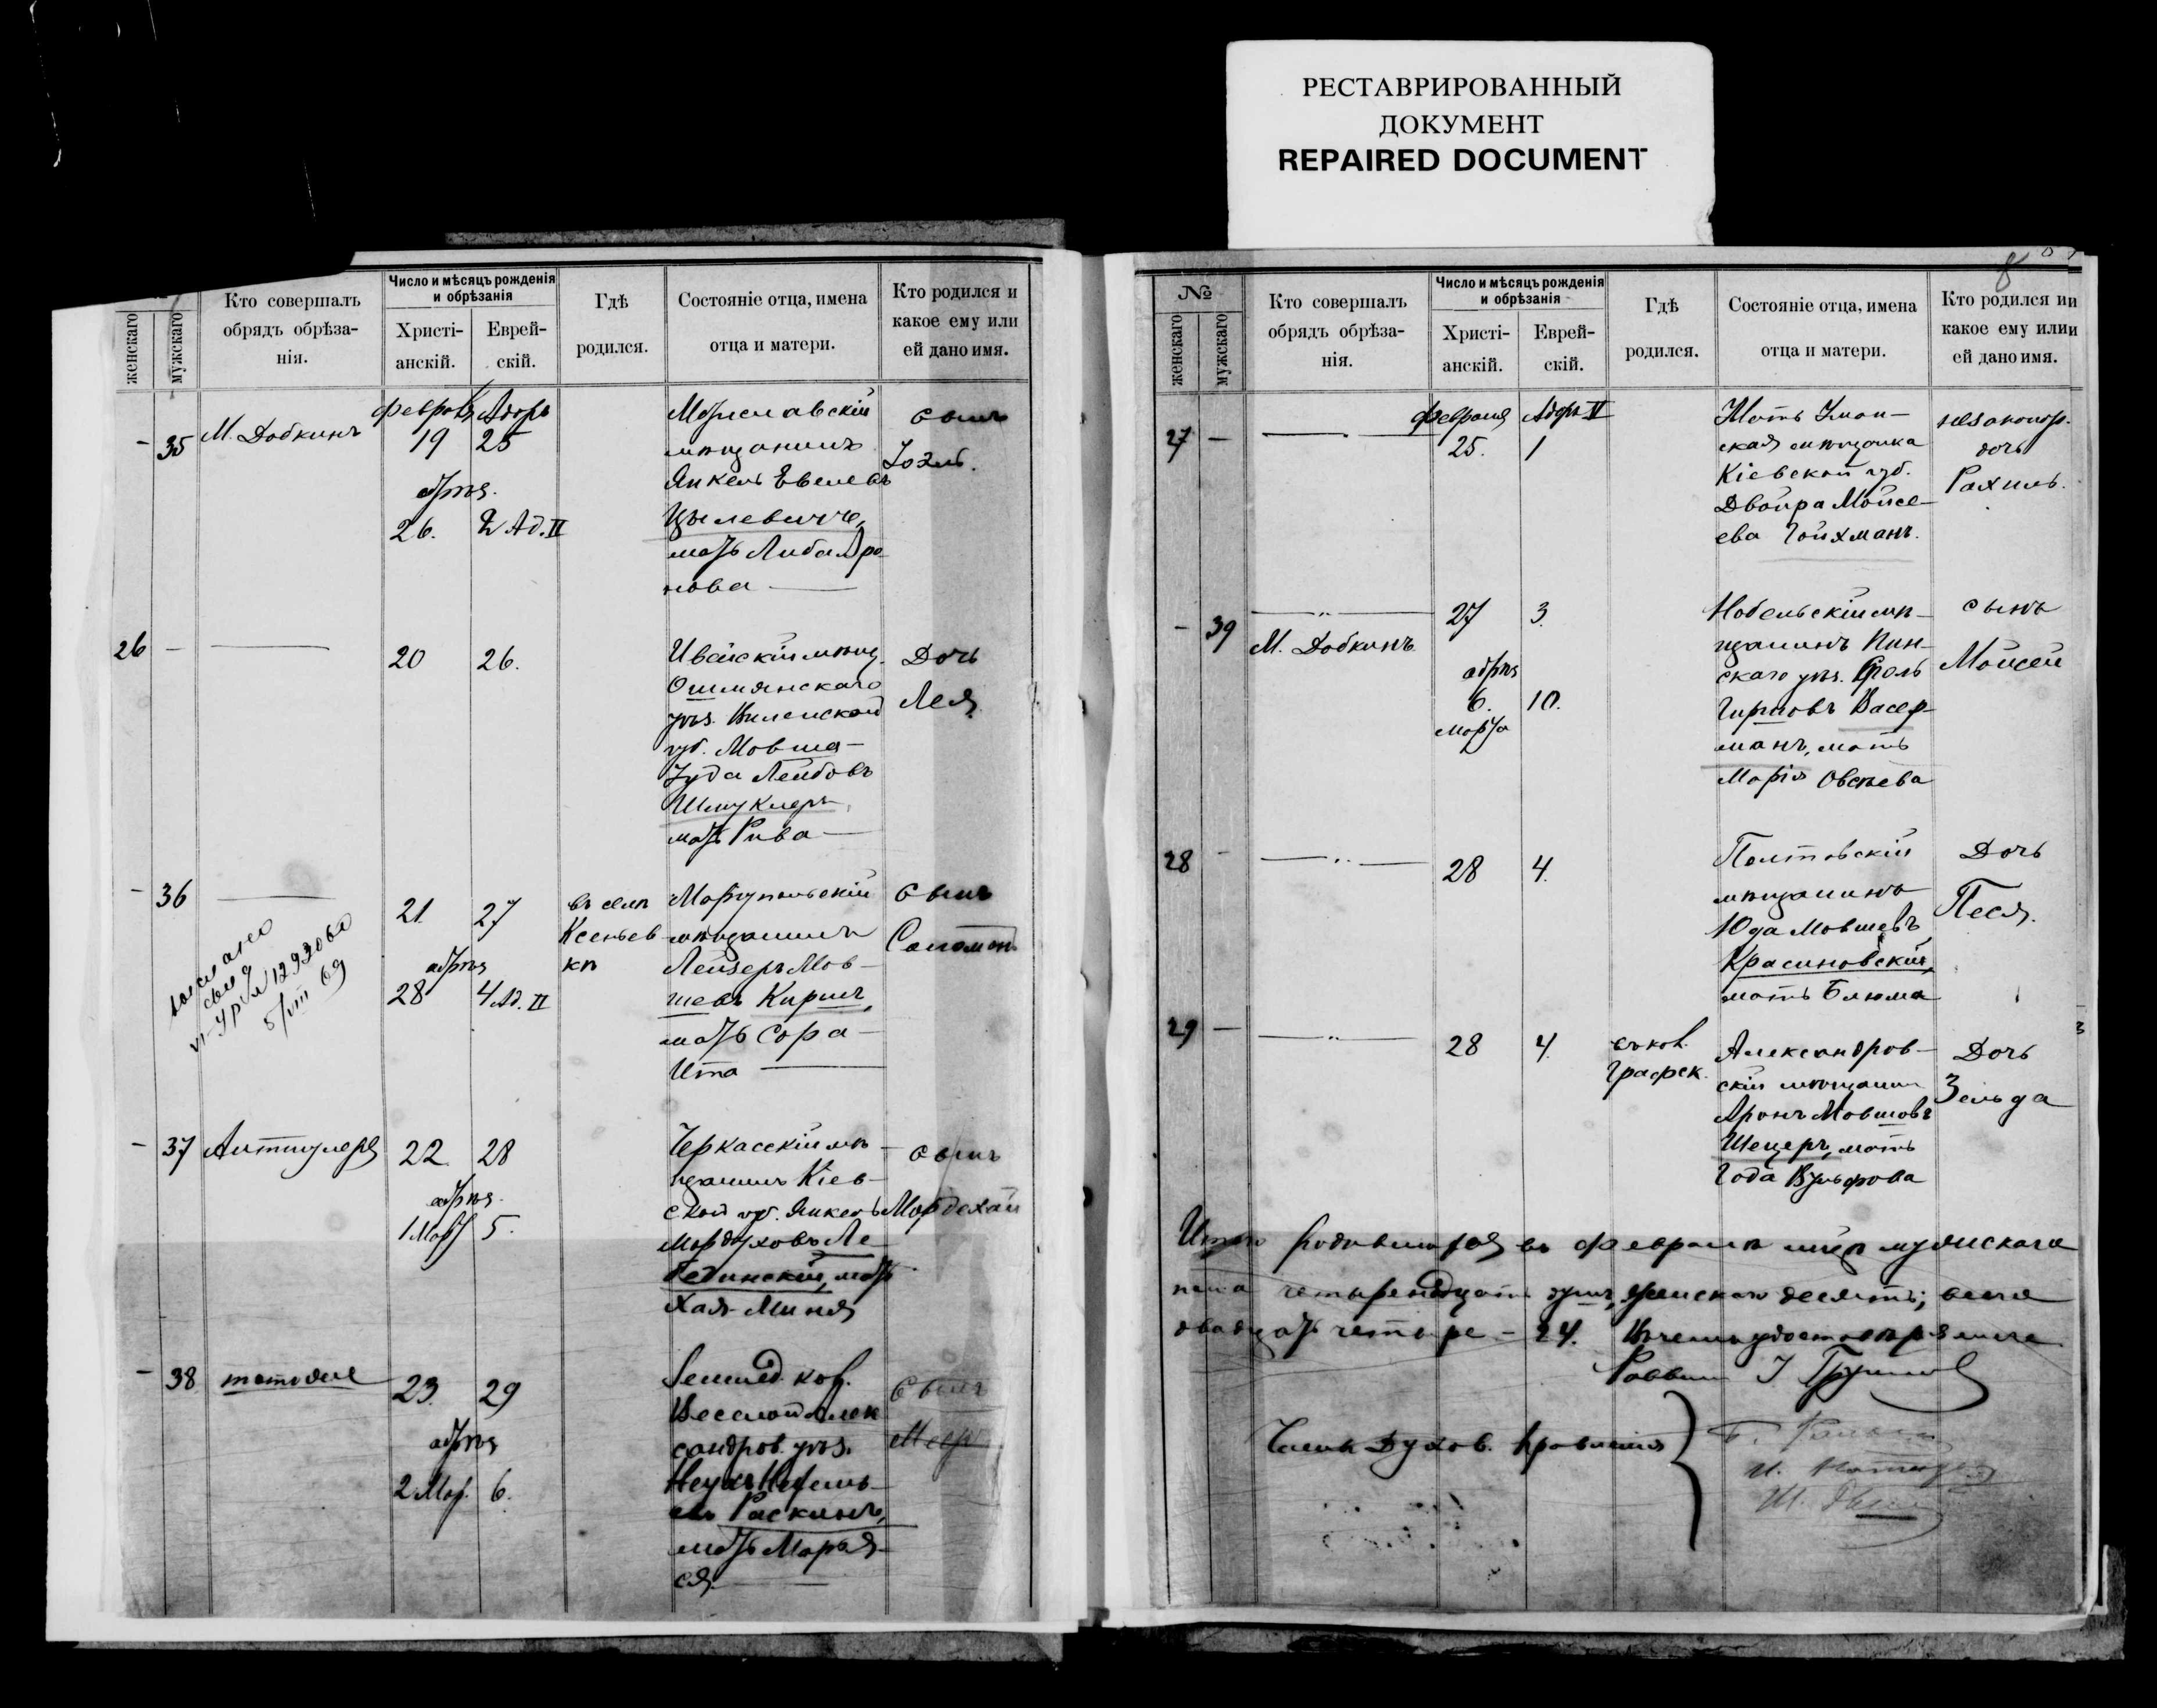 РЕСТАВРИРОВАННЫЙ
ДОКУМЕНТ
REPAIRED DOCUMENT
женскаго
мужскаго
Кто совершалъ
обрядъ обрѣза-
нія.
Число и мѣсяцъ рожденія
и обрѣзанія
Христі-
анскій.
Еврей-
скій.
Гдѣ
родился.
Состояніе отца, имена
отца и матери.
Кто родился и
какое ему или
ей дано имя.
– 35
М. Добкинъ
Февраля
19
обрѣз.
26.
Адаръ
25
2 Ад. II
мѣщанинъ
Янкель Евелевъ
мать Либа Аро-
нова —
сынъ
26 –
20
26.
Ивейскій мѣщ.
Ошмянскаго
уѣз. Виленской
губ. Мовша-
Іуда Лейбовъ
Шмуклеръ,
мать Рива —
Дочь
Лея
– 36
21
обрѣз
28
27
4 Ад. II
въ селѣ
Ксеньев
кѣ
Маріупольскій
мѣщанинъ
Лейзеръ Мов-
шевъ Киршъ,
мать Сора-
Ита —
сынъ
Соломонъ
– 37
22
обрѣз.
1 Мар
28
5.
Черкасскій мѣ-
щанинъ Кіев-
ской губ. Янкель
Мордуховъ Ле-
бединскій, мать
Хая-Миня
сынъ
Мордехай
– 38
тотъ же
23.
обрѣз
2 Мар.
29
6.
Землед. кол.
Веселой Алек
сандров. уѣз.
Раскинъ,
мать Марья-
ся. —
сынъ
Меер
№
женскаго
мужскаго
Кто совершалъ
обрядъ обрѣза-
нія.
Число и мѣсяцъ рожденія
и обрѣзанія
Христі-
анскій.
Еврей-
скій.
Гдѣ
родился.
Состояніе отца, имена
отца и матери.
Кто родился ии
какое ему илии
ей дано имя.
8
27 –
Февраля
25.
Адаръ II
1
Мать Уман-
ская мѣщанка
Кіевской губ.
Двойра Мойсе-
ева Гойхманъ.
незаконор.
дочь
Рахиль.
– 39
М. Добкинъ
27
обрѣз
6.
марта
3.
10.
Нобельскій мѣ-
щанинъ Пин-
скаго уѣз. Сроль
Гиршовъ Васер-
манъ, мать
Марія Овсѣева
сынъ
Мойсей
28 –
28
4.
Полтовскій
мѣщанинъ
Юда Мовшевъ
Красиновскій,
мать Блюма
Дочь
Песя.
29 –
28
4.
въ кол.
Графск.
Александров-
скій мѣщанин
Аронъ Мовшовъ
мать
Года Вульфова
Дочь
Зельда
Итого родившихся въ Февралѣ м-цѣ мужскаго
пола четырнадцать душъ, женскаго десять; всего
двадцать четыре – 24. Въ чемъ удостовѣряемъ
Раввин
Члены Духов. Правленія